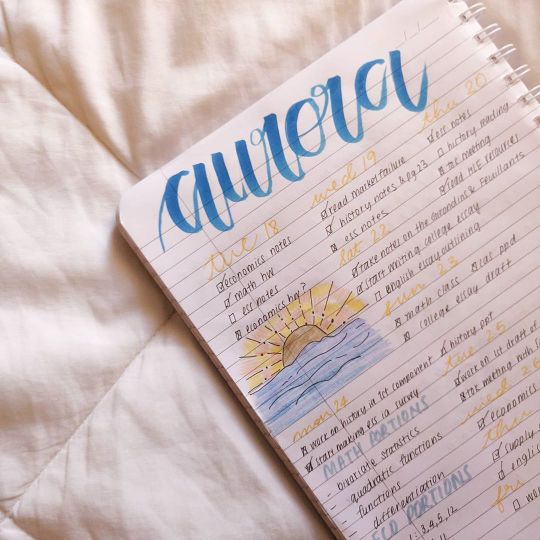 aurora
tue 18
economics notes
math hw
ess notes
economics hw?
wed 19
read market failure
history notes & pg 23
ess notes
thu 20
ess notes
history reading
tok meeting
read resources
sat 22
take notes on the girondins & feuillants
start writing college essay
english essay outlining
sun 23
math class
cas
college essay draft
mon 24
work on history ia 1st component
start making ess ia survey
MATH PORTIONS
- bivariate statistics
- quadratic functions
- functions
- differentiation
ECO PORTIONS
3,4,5,12
history ppt
tue 25
work on 1st draft of
tok meeting with
wed 26
economics
thu
supply
englis
fri